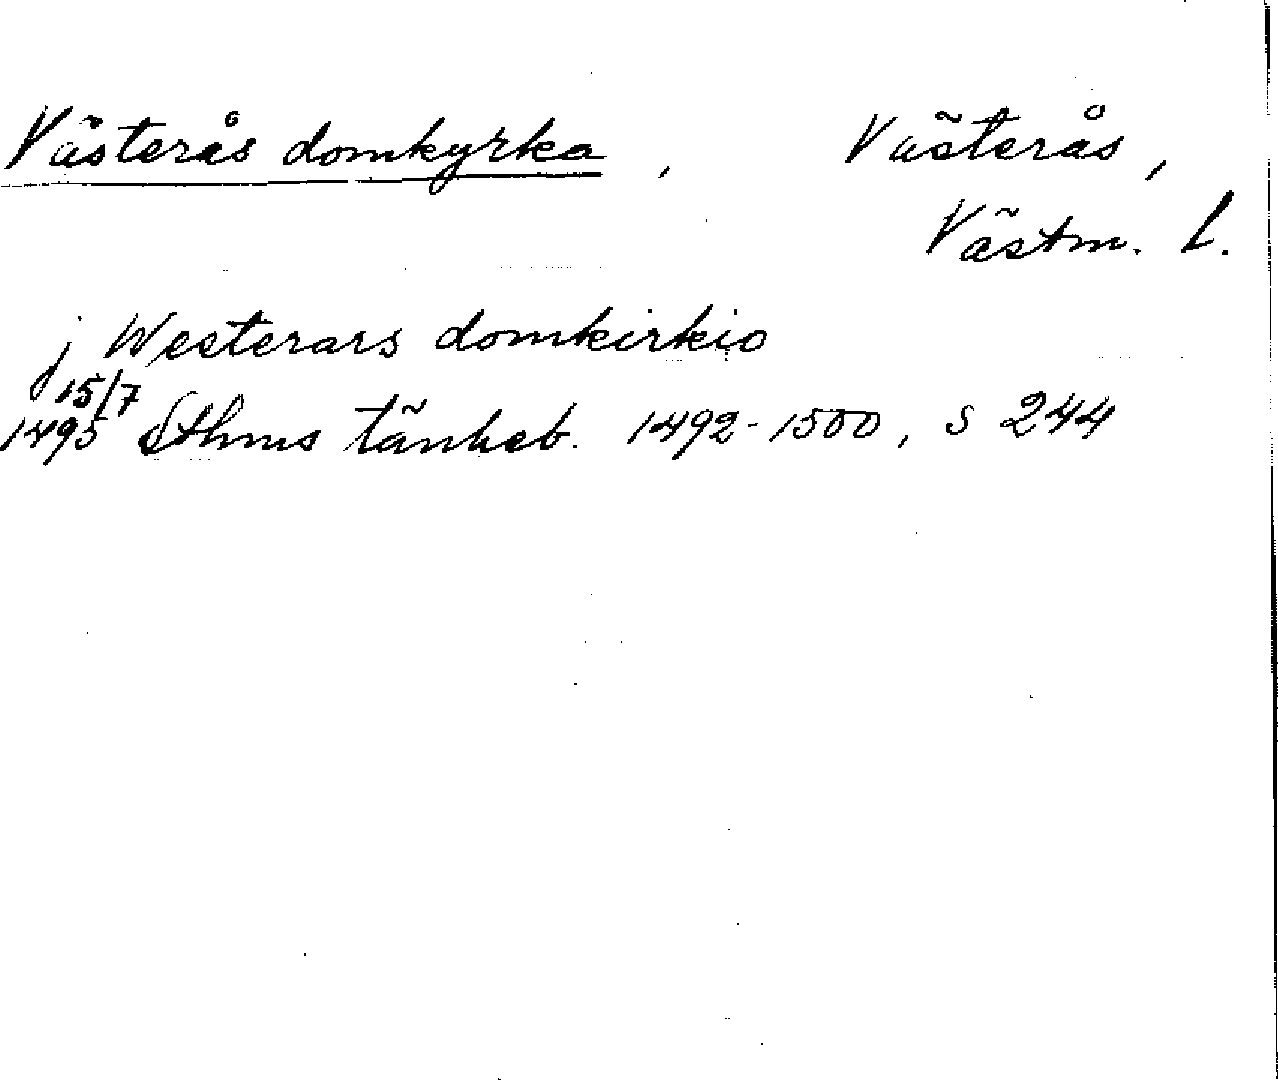 Västerås domkyrka, Västerås,
Västm. l.
j Westerars domkirkio
15/7
1495 Sthms tänkeb. 1492-1500, s 244